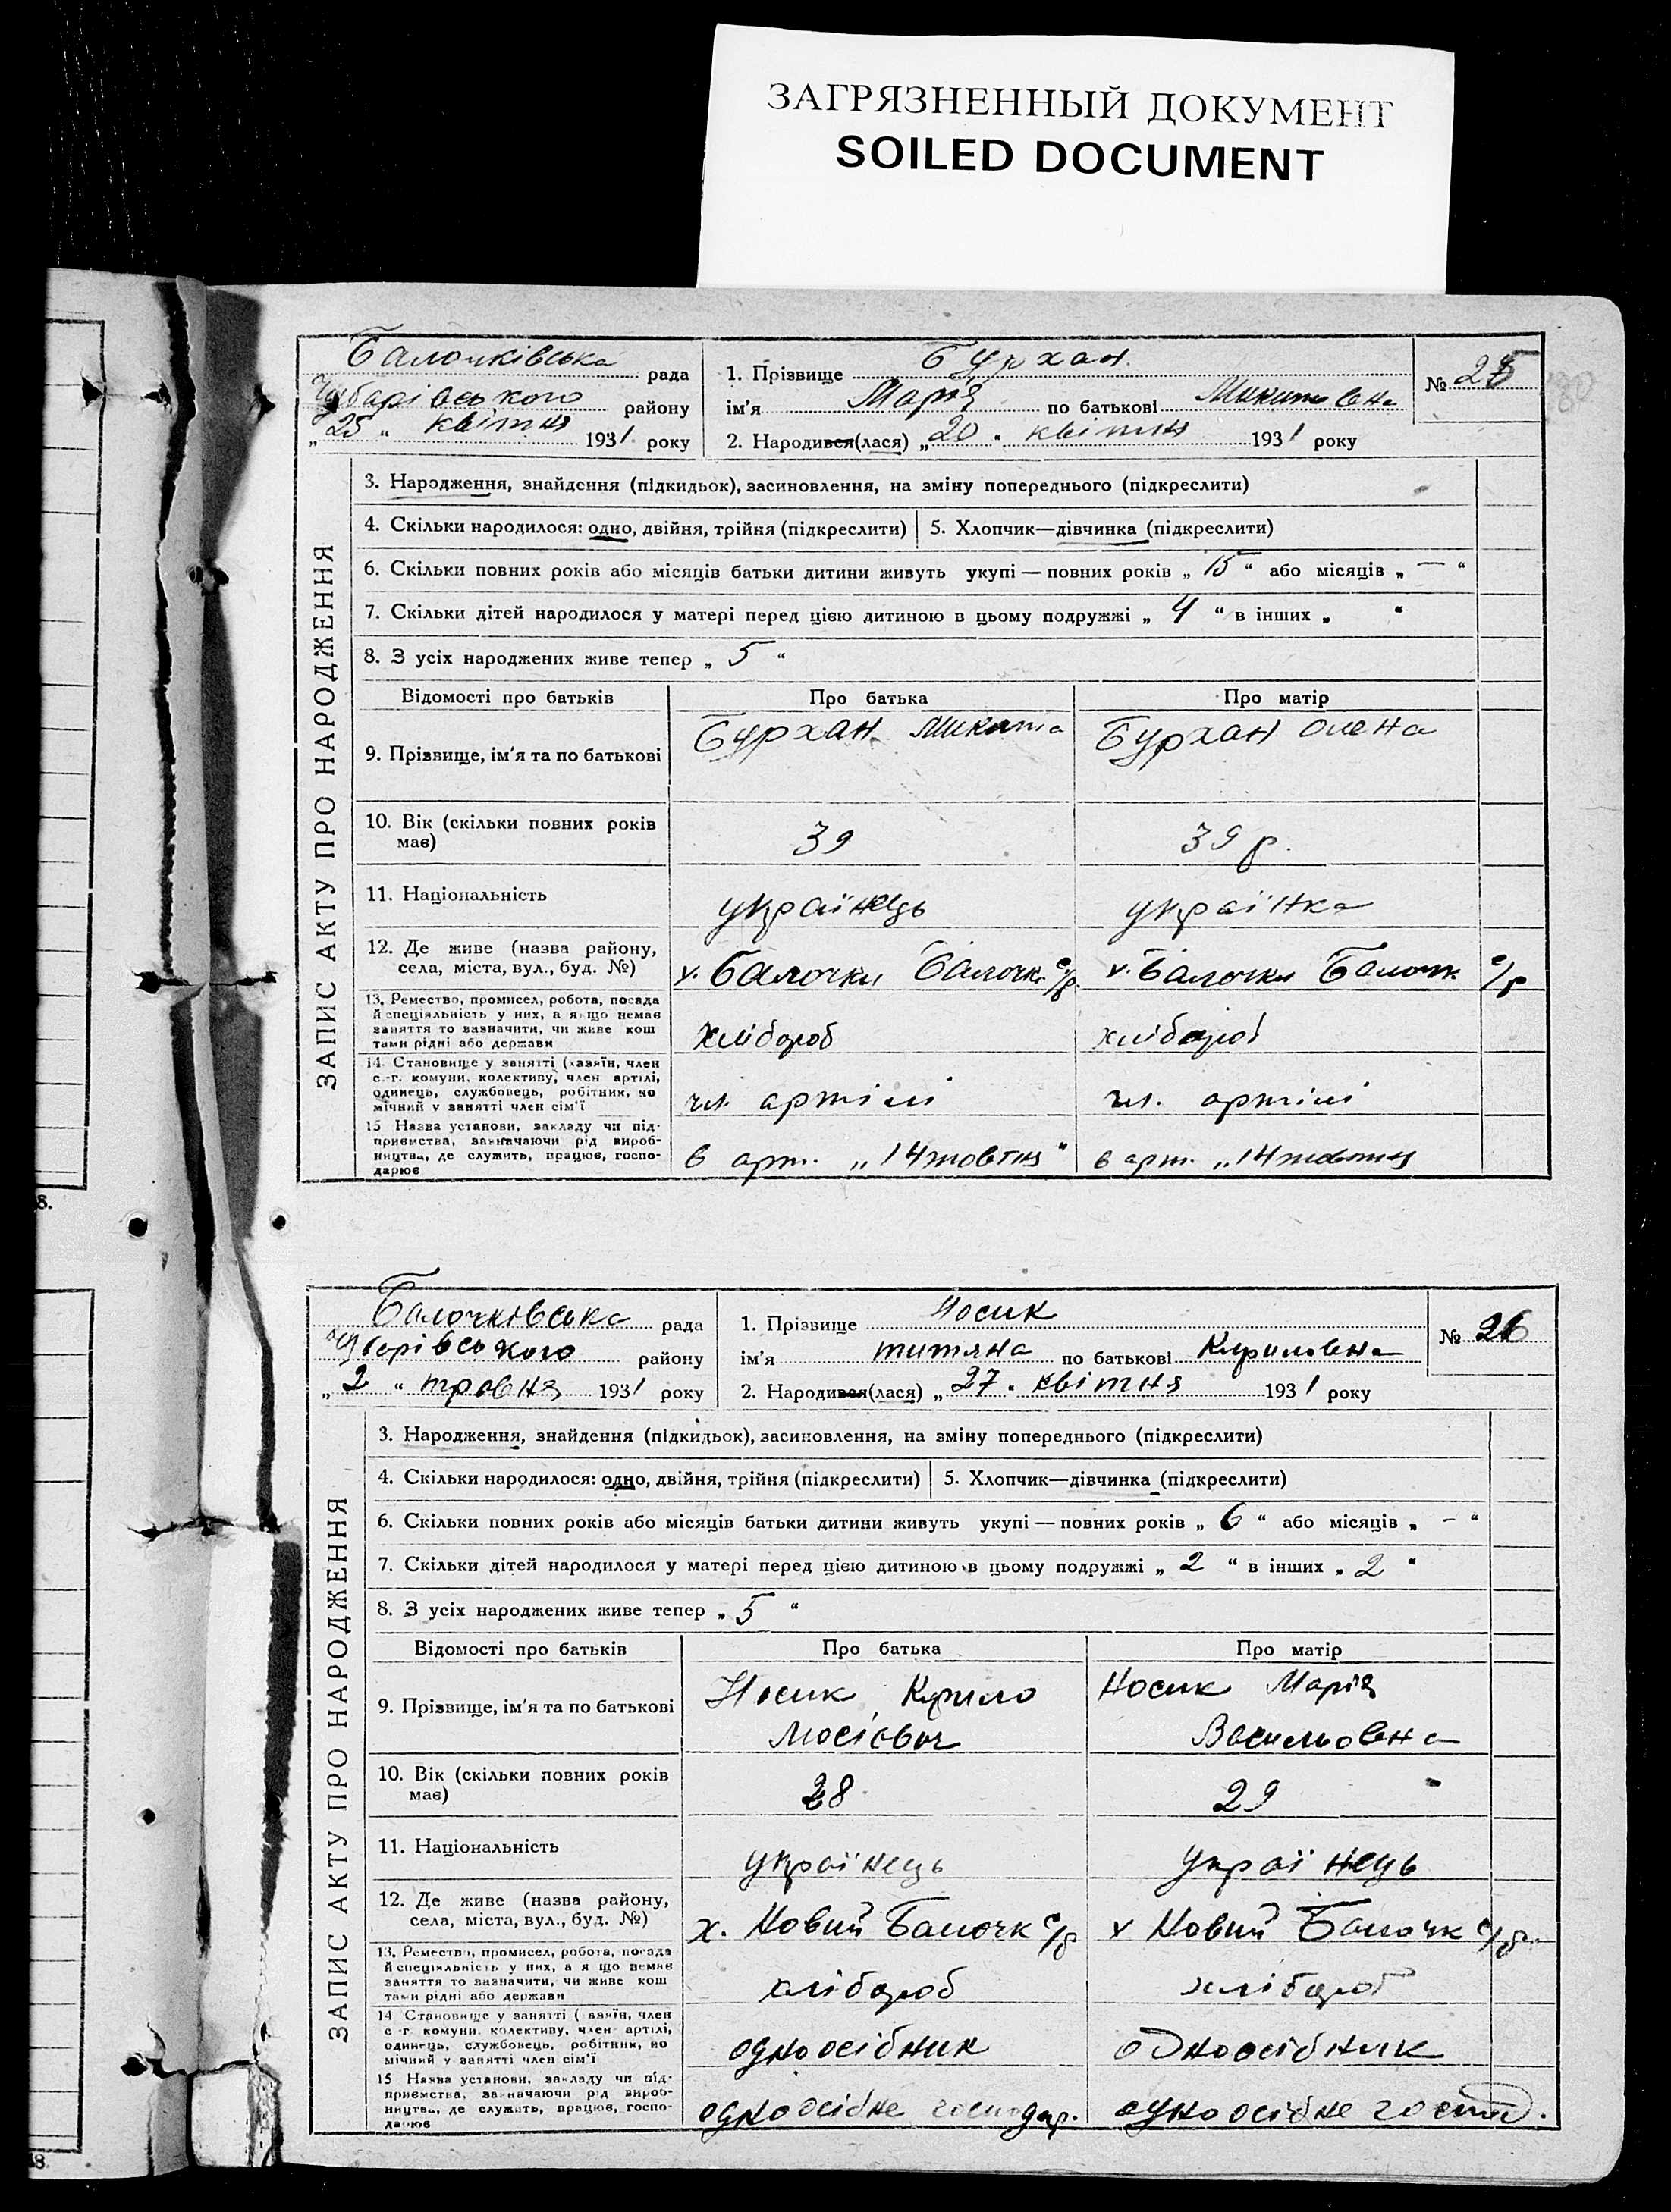 ЗАГРЯЗНЕННЫЙ ДОКУМЕНТ
SOILED DOCUMENT
Балочківська рада
Чубарівського району
„25“ квітня 1931 року
1. Прізвище Бурхан
ім'я Марія по батькові Микитовна
2. Народився(лася) „20. квітня 1931 року
№ 25
80
ЗАПИС АКТУ ПРО НАРОДЖЕННЯ
3. Народження, знайдення (підкидьок), засиновлення, на зміну попереднього (підкреслити)
4. Скільки народилося: одно, двійня, трійня (підкреслити) 5. Хлопчик—дівчинка (підкреслити)
6. Скільки повних років або місяців батьки дитини живуть укупі — повних років „ 15 “ або місяців „ — “
7. Скільки дітей народилося у матері перед цією дитиною в цьому подружжі „ 4 “ в інших „ “
8. З усіх народжених живе тепер „ 5 “
Відомості про батьків Про батька Про матір
9. Прізвище, ім'я та по батькові Бурхан Микита Бурхан Олена
10. Вік (скільки повних років має) 39 39 р.
11. Національність українець українка
12. Де живе (назва району, села, міста, вул., буд. №) х. Балочки Балочк. с/р. х. Балочки Балочк. с/р
13. Ремество, промисел, робота, посада
й спеціяльність у них, а якщо немає
заняття то зазначити, чи живе кош
тами рідні або держави
хлібороб хлібороб
14. Становище у занятті (хазяїн, член
с.-г. комуни, колективу, член артілі,
одинець, службовець, робітник, по
мічний у занятті член сім'ї
чл. артілі чл. артілі
15 Назва установи, закладу чи під-
приємства, зазначаючи рід вироб-
ництва, де служить, працює, госпо-
дарює
в арт. „14 жовтня“ в арт. „14 жовтня
8.
Балочківська рада
Чубарівського району
„2“ травня 1931 року
1. Прізвище Носик
ім'я титяна по батькові Кириловна
2. Народився(лася) „27. квітня 1931 року
№ 26
ЗАПИС АКТУ ПРО НАРОДЖЕННЯ
3. Народження, знайдення (підкидьок), засиновлення, на зміну попереднього (підкреслити)
4. Скільки народилося: одно, двійня, трійня (підкреслити) 5. Хлопчик—дівчинка (підкреслити)
6. Скільки повних років або місяців батьки дитини живуть укупі — повних років „ 6 “ або місяців „ – “
7. Скільки дітей народилося у матері перед цією дитиною в цьому подружжі „ 2 “ в інших „ 2 “
8. З усіх народжених живе тепер „ 5 “
Відомості про батьків Про батька Про матір
9. Прізвище, ім'я та по батькові Носик Кирило Мосієвич Носик Марія Васильовна
10. Вік (скільки повних років має) 28 29
11. Національність українець українець
12. Де живе (назва району, села, міста, вул., буд. №) х. Новий Балочк с/р х Новий Балочк с/р.
13. Ремество, промисел, робота, посада
й спеціяльність у них, а якщо немає
заняття то зазначити, чи живе кош
тами рідні або держави
хлібороб хлібороб
14 Становище у занятті (хазяїн, член
с-г. комуни, колективу, член артілі,
одинець, службовець, робітник, по
мічний у занятті член сім'ї
одноосібник одноосібник
15 Назва установи, закладу чи під-
приємства, зазначаючи рід вироб-
ництва, де служить, працює, госпо-
дарює
одноосібне господар. одноосібне госпд.
8.